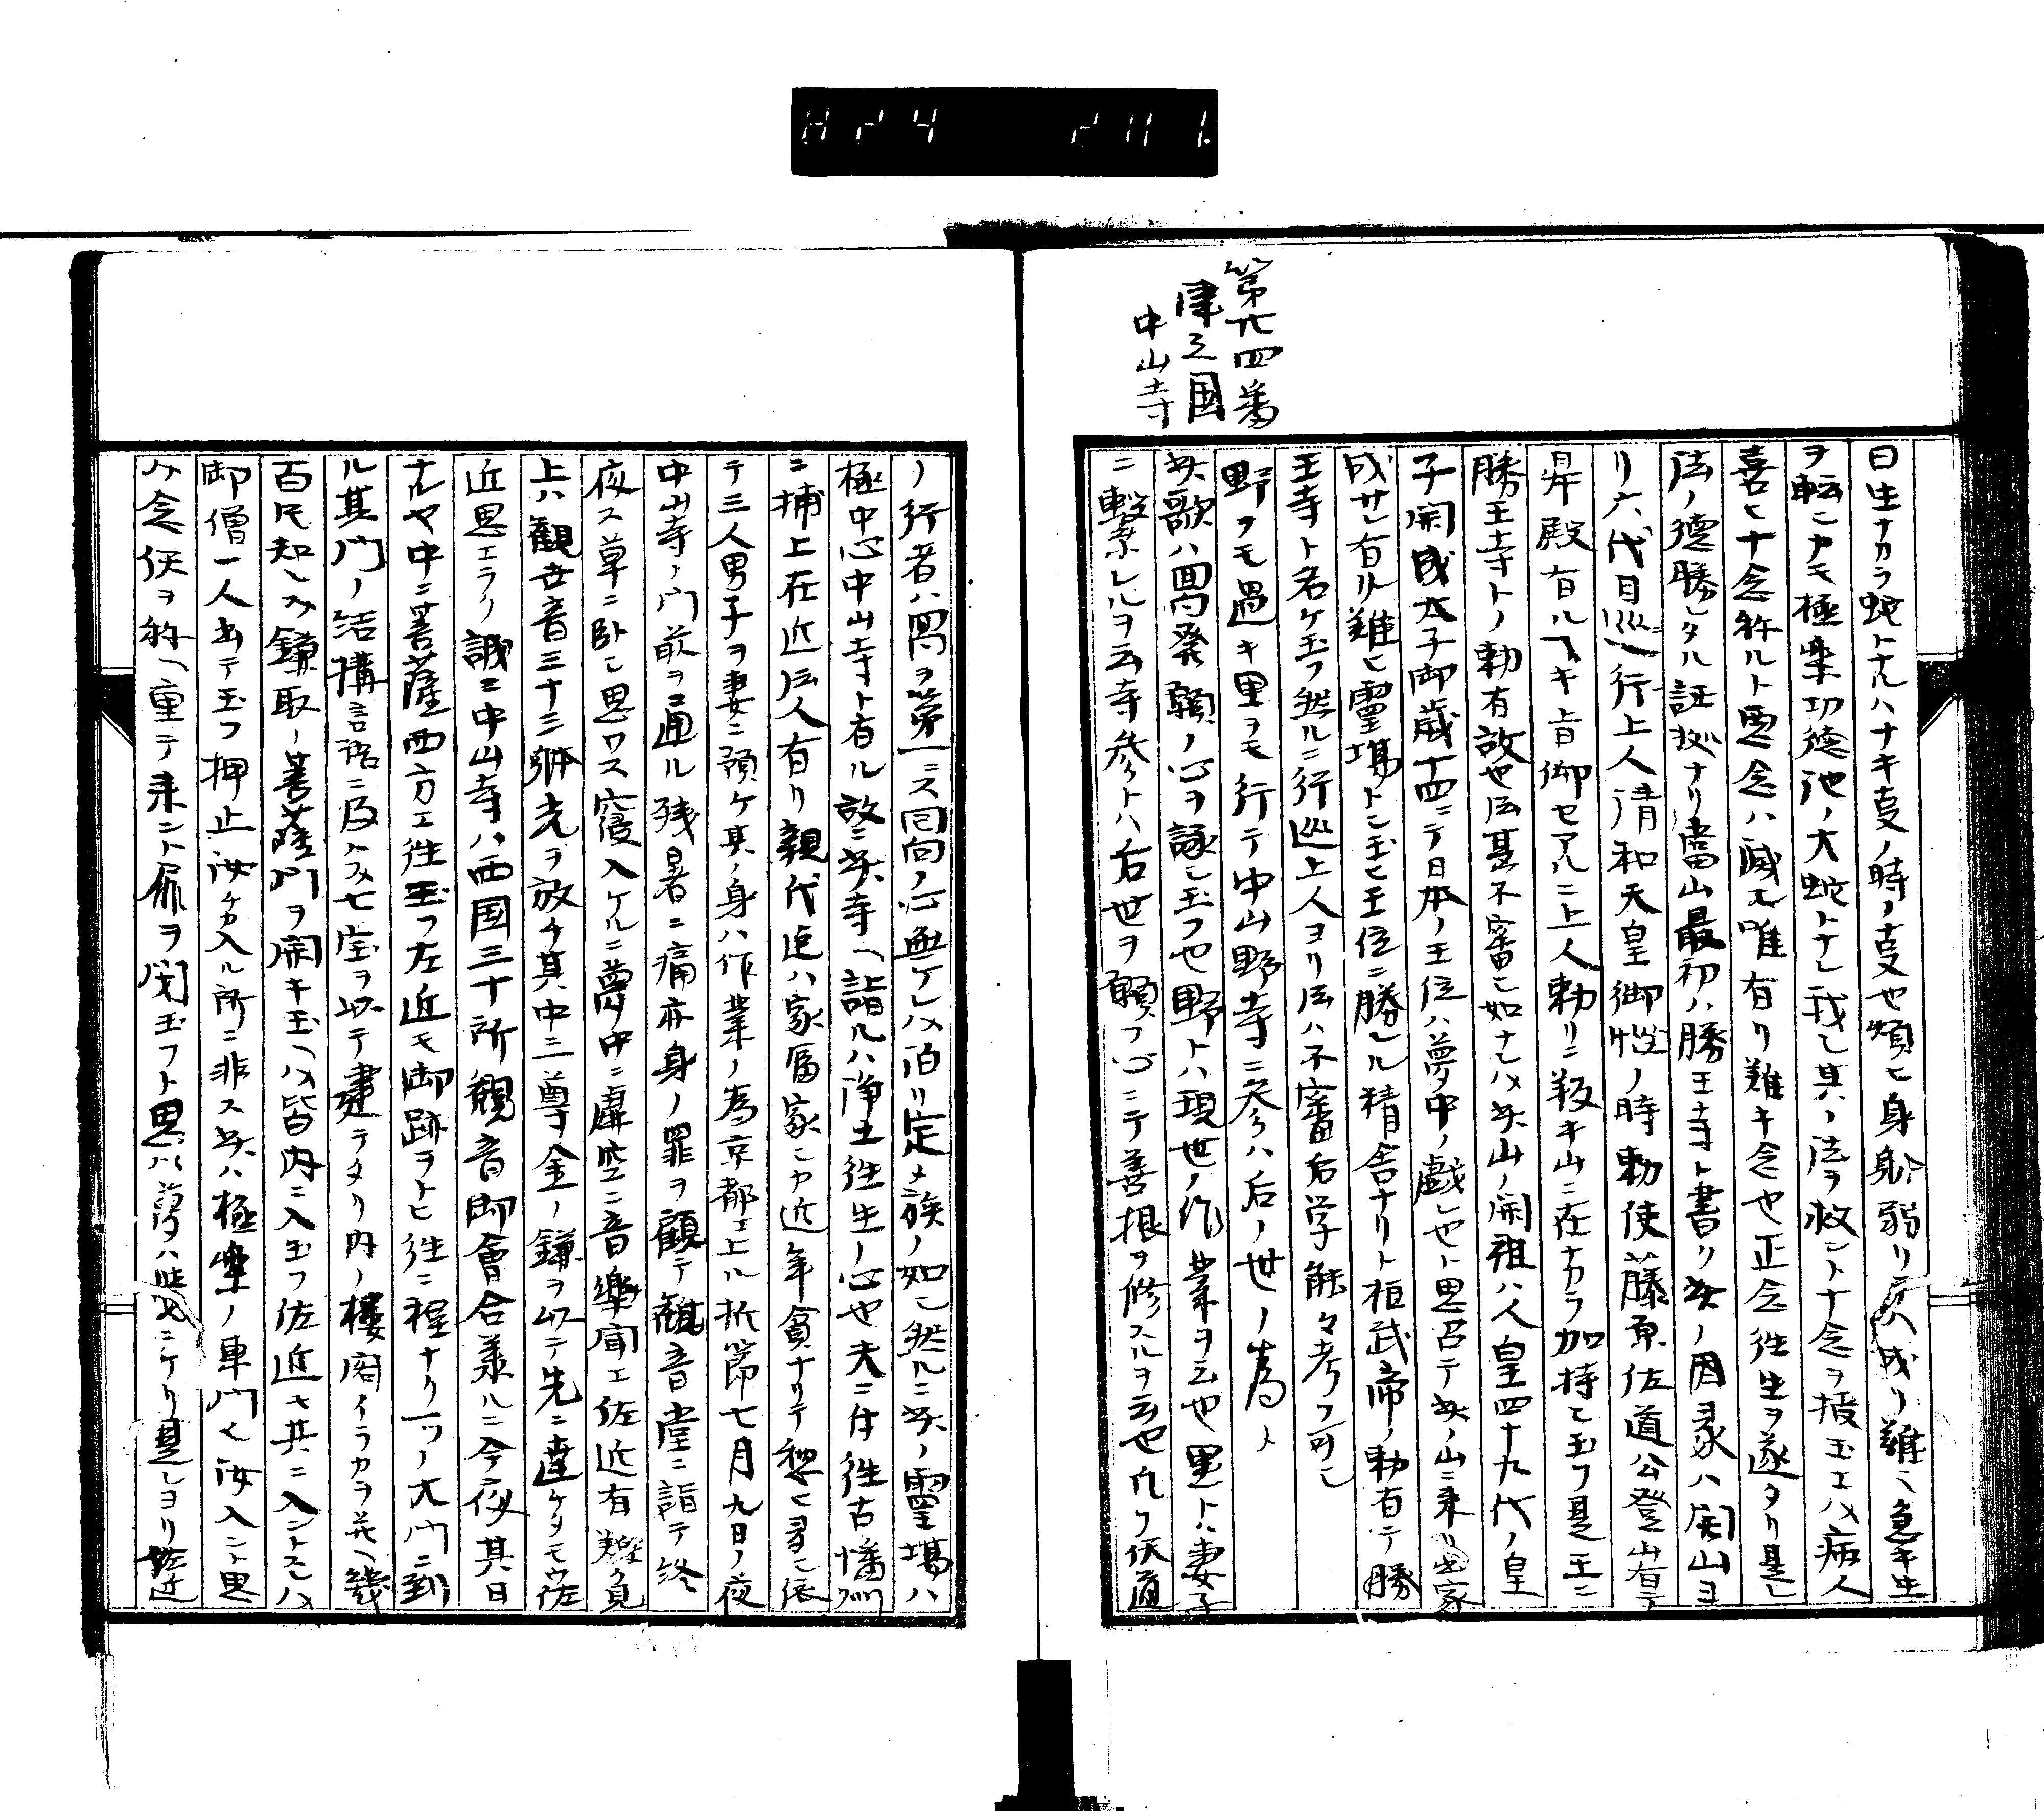 第廿四番
津之国
中山寺
日生ナカラ蛇トナルハナキ㕝ノ時ノ㕝也煩ヒ身躰弱リ 成リ難シ急キ生
ヲ転シナモ極楽功徳池ノ大蛇トナシ我レ其ノ法ヲ救ント十念ヲ授玉エハ病人
喜ヒ十念称ルト悪念ハ滅モ唯有リ難キ念也正念往生ヲ遂タリ是レ
法ノ徳勝レタル証拠ナリ當山最初ハ勝王寺ト書リ其ノ因縁ハ開山ヨ
リ六代目巡行上人清和天皇御悩ノ時勅使藤原佐道公登山有テ
昇殿有ルヘキ㫖御セアルニ上人勅リニ叛キ山ニ在ナカラ加持シ玉フ是王ニ
勝王寺トノ勅有故也法基不審シ如ナレハ其山ノ開祖ハ人皇四十九代ノ皇
子開成太子御歳十四ニテ日本ノ王位ハ夢中ノ戯レ也ト思召テ其ノ山ニ来リ出家
成サレ有リ難ヒ霊場トシ玉ヒ王位ニ勝レル精舎ナリト桓武帝ノ勅有テ勝
王寺ト名ケ玉フ然ルニ行巡上人ヨリ法ハ不審后学能々考フ可シ
野ヲモ過キ里ヲモ行テ中山野寺ニ参ルハ后ノ世ノ為メ
其歌ハ回発願ノ心ヲ詠シ玉フ也野トハ現世ノ作業ヲ云也里トハ妻子
ニ繋レルヲ云寺参トハ后世ヲ願フ心ニテ善根ヲ修スルヲ云也凡ク仏道
ノ行者ハ回ヲ第一ニス回向ノ心無ケレハ泊リ定メ旅ノ如シ然ルニ其ノ霊場ハ
極中心中山寺ト有ル故ニ其寺ヘ詣ルハ浄土往生ノ心也夫ニ付往古幡州
ニ捕上在近法人有リ親代迄ハ家冨家シカ近年貧ナリテ愁ヒ 依
テ三人男子ヲ妻ニ預ケ其ノ身ハ作業ノ為京都エ上ル折節七月九日ノ夜
中山寺ノ門前ヲ通ル残暑ニ痛亦身ノ罪ヲ顧テ観音堂ニ詣テ終
夜ス草ニ臥シ思ワス寝入ケルニ夢中ニ虚空ニ音樂聞エ佐近有難負
上ハ観世音三十三躰光ヲ放チ其中ニ尊金ノ鎌ヲ以テ先ニ達ケタモ佐
近思エラク誠ニ中山寺ハ西国三十所観音御會合業ルニ今夜其日
ナルヤ中ニ菩薩西方エ往玉フ左近モ御跡ヲトヒ往ニ程ナク一ツノ大門ニ到
ル其門ノ結構言語ニ及ハス七宝ヲ以テ建テタリ内ノ樓閣イラカヲ並ヘ幾
百尺知レス鎌取ノ菩薩門ヲ開キ玉ヘハ皆内ニ入玉フ佐近モ共ニ入ントスレハ
御僧一人出テ玉フ押止汝ケカ入ル所ニ非ス其ハ極樂ノ車門也汝入ント思
ハヽ念仏ヲ称ヘ重テ来ント扉ヲ閉玉フト思ハ夢ハ サメニケリ是レヨリ佐近